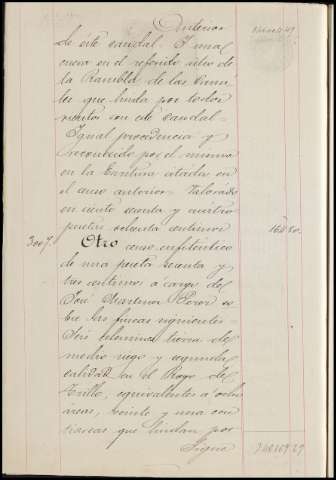 Anterior
de este caudal. Y una
cueva en el referido sitio de
la Rambla de las
que linda por todos
vientos con este caudal.
Igual procedencia y
reconocido por el mismo
en la Escritura citada en
el censo anterior. Valorado
en ciento sesenta y cuatro
pesetas ochenta centimos 164 80.
3007. Otro censo enfitéutico
de una peseta sesenta y
tres centimos á cargo de
José Martinez so
bre las fincas siguientes.
Seis celemines tierra de
medio riego y segunda
calidad en el Pago de
equivalentes a ocho
áreas, veinte y una cen
tiareas que lindan por
Sigue